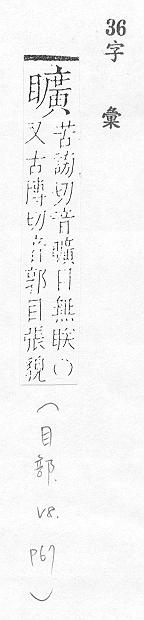 36字 彙
矌
苦謗切音曠目無眹()
又古博切音郭目張貌
(目部. V8. P67)